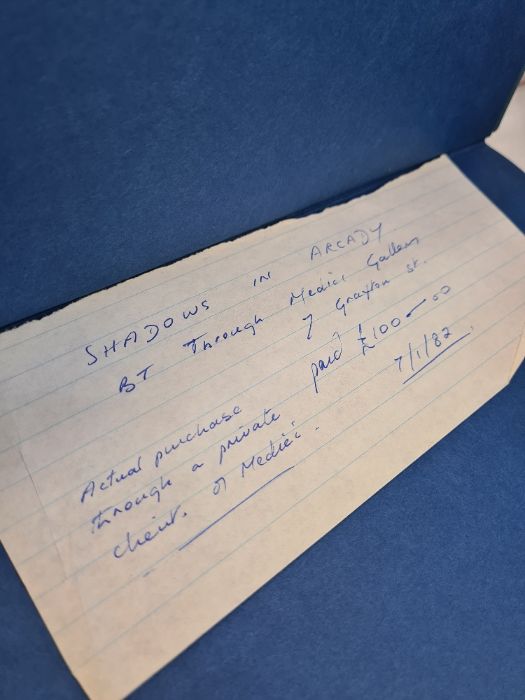 SHADOWS IN ARCADY
BT Through Medici Gallery
7 Grafton St.
paid £100 - 00
7/1/82
Actual purchase
through a private
client. of Medici.